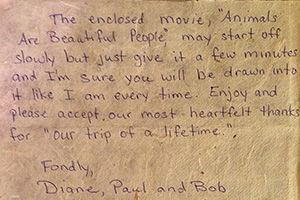 The enclosed movie, "Animals
Are Beautiful People" may start off
slowly but just give it a few minutes
and I'm sure you will be drawn into
it like I am every time. Enjoy and
please accept our most heartfelt thanks
for "our trip of a lifetime.".
Fondly,
Diane, Paul and Bob